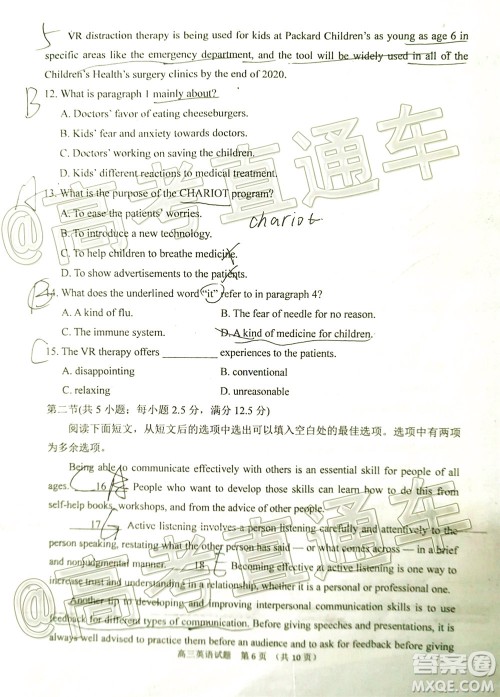 5 VR distraction therapy is being used for kids at Packard Children's as young as age 6 in
specific areas like the emergency department, and the tool will be widely used in all of the
Children's Health's surgery clinics by the end of 2020.
B 12. What is paragraph 1 mainly about?
A. Doctors' favor of eating cheeseburgers.
B. Kids' fear and anxiety towards doctors.
C. Doctors' working on saving the children.
D. Kids' different reactions to medical treatment.
A 13. What is the purpose of the CHARIOT program?
A. To ease the patients' worries.
chariot
B. To introduce a new technology.
C. To help children to breathe medicine.
D. To show advertisements to the patients.
B 14. What does the underlined word "it" refer to in paragraph 4?
A. A kind of flu. B. The fear of needle for no reason.
C. The immune system. D. A kind of medicine for children.
C 15. The VR therapy offers __________ experiences to the patients.
A. disappointing B. conventional
C. relaxing D. unreasonable
第二节(共 5 小题;每小题 2.5 分,满分 12.5 分)
阅读下面短文,从短文后的选项中选出可以填入空白处的最佳选项。选项中有两项
为多余选项。
Being able to communicate effectively with others is an essential skill for people of all
ages. 16 People who want to develop those skills can learn how to do this from
self-help books, workshops, and from the advice of other people.
17 Active listening involves a person listening carefully and attentively to the
person speaking, restating what the other person has said — or what comes across — in a brief
and nonjudgmental manner. 18 Becoming effective at active listening is one way to
increase trust and understanding in a relationship, whether it is a personal or professional one.
Another tip to developing and improving interpersonal communication skills is to use
feedback for different types of communication. Before giving speeches and presentations, it is
always well advised to practice them before an audience and to ask for feedback before giving
高三英语试题 第 6 页 (共 10 页)
@高考直通车
答案圈
MXQE.COM